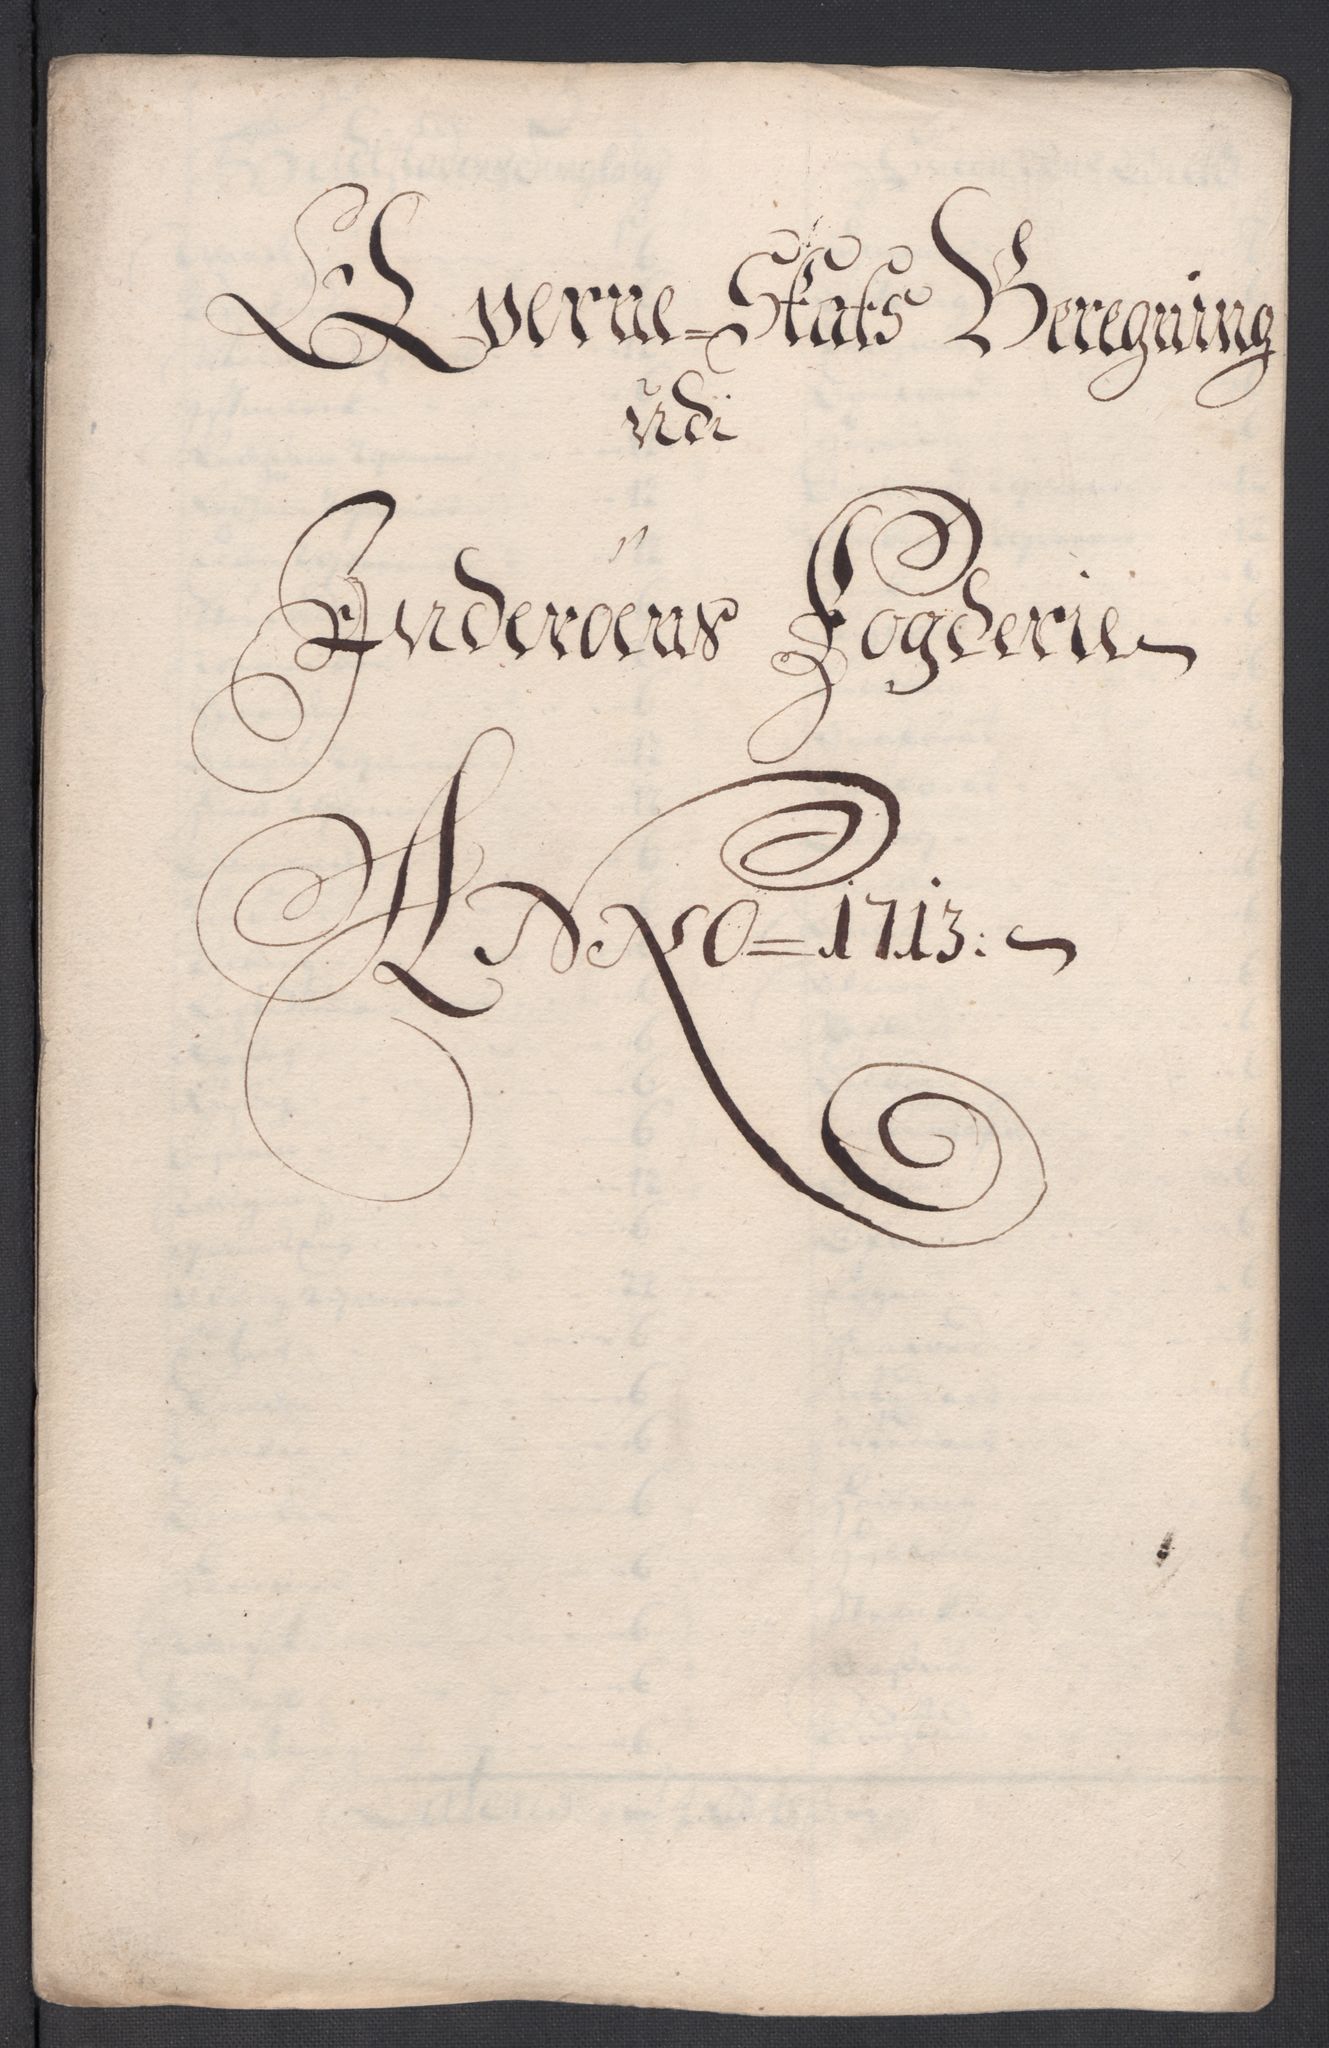 Qverne-Skats Beregning
udi
Inderöens Fogderie
ANNO=1713: